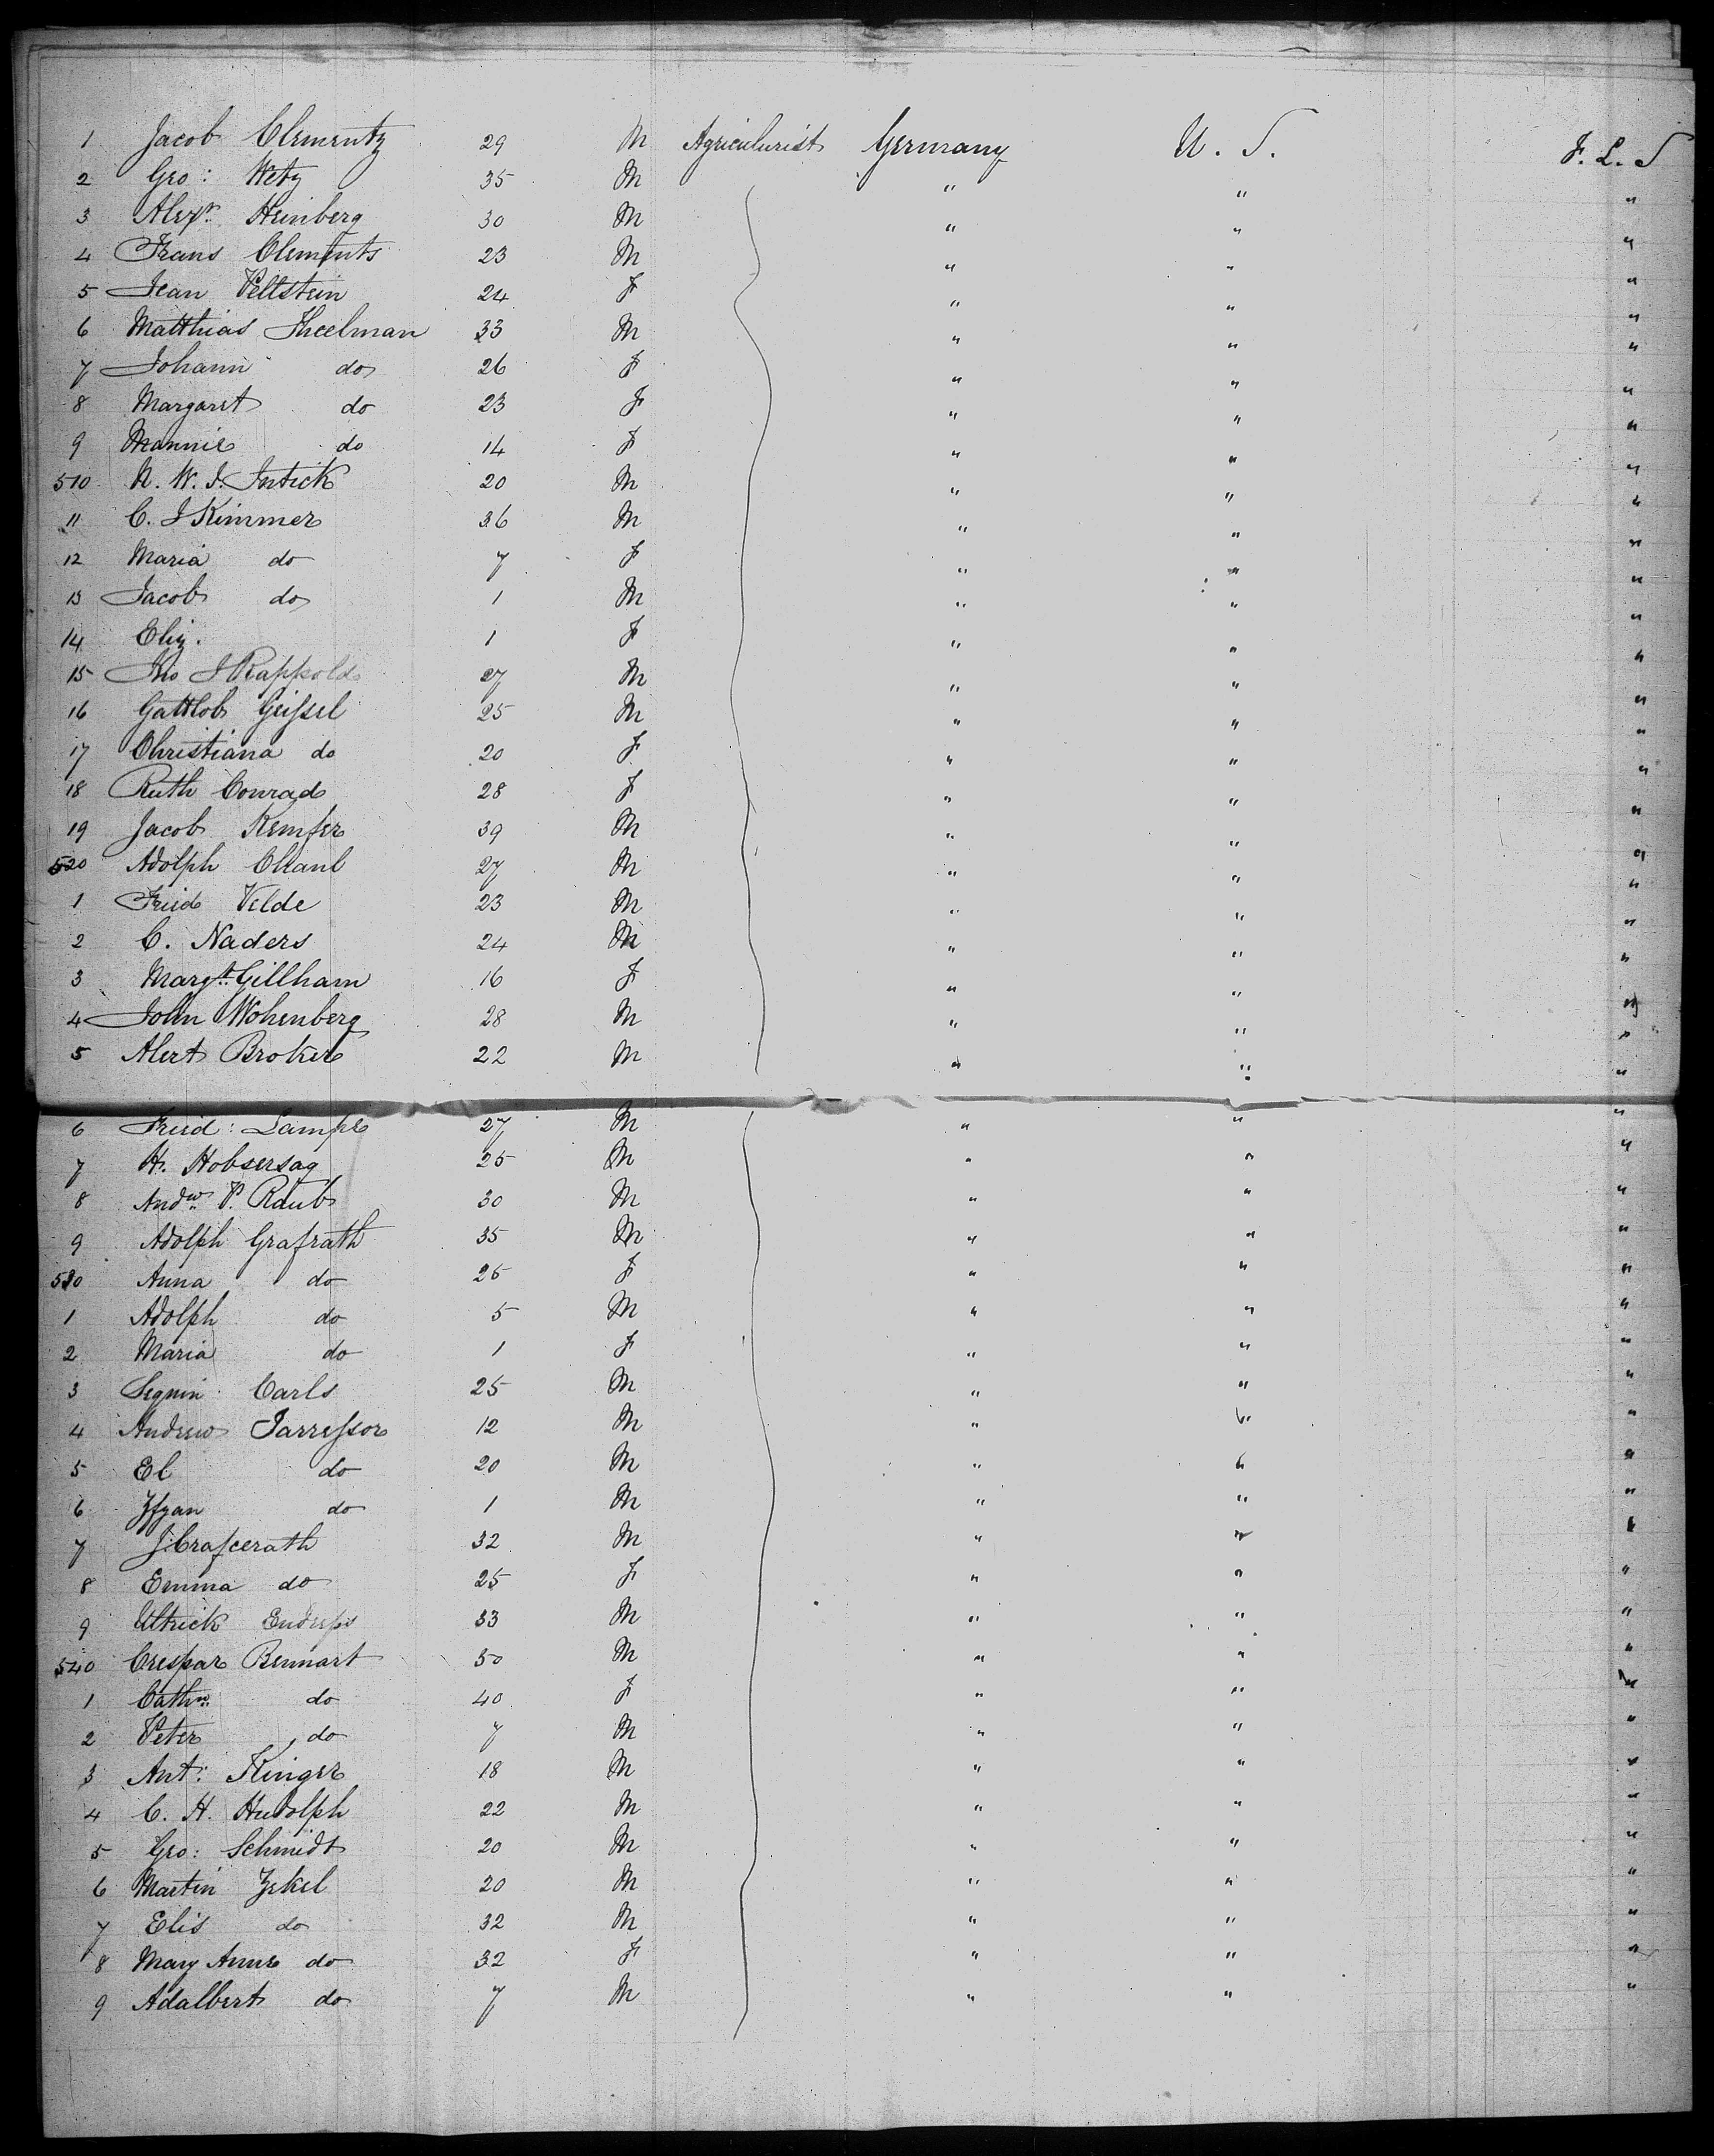 1 Jacob Clementz 29 M Agriculurist Germany U. S. F. L. S
2 Geo: Wetz 35 M " " "
3 Alexr. Heinberg 30 M " " "
4 Frans Clements 23 M " " "
5 Jean Veltstein 24 F " " "
6 Matthias Theelman 33 M " " "
7 Johann do 26 F " " "
8 Margaret do 23 F " " "
9 Mannie do 14 F " " "
510 N. W. J. 20 M " " "
11 C. J Kimmer 36 M " " "
12 Maria do 7 F " " "
13 Jacob do 1 M " " "
14 Eliz. 1 F " " "
15 Jno J Rappold 27 M " " "
16 Gattlob Geissel 25 M " " "
17 Christiana do 20 F " " "
18 Ruth Conrad 28 F " " "
19 Jacob Kemfer 39 M " " "
520 Adolph 27 M " " "
1 Fried Velde 23 M " " "
2 C. Naders 24 M " " "
3 Margt. Gillham 16 F " " "
4 John Wohenberg 28 M " " "
5 Alert Broker 22 M " " "
6 Fried: Lampe 27 M " " "
7 H. Hobsersag 25 M " " "
8 Andw. P. Raub 30 M " " "
9 Adolph Grafrath 35 M " " "
530 Anna do 25 F " " "
1 Adolph do 5 M " " "
2 Maria do 1 F " " "
3 Segnin Carls 25 M " " "
4 Andrew Jarressor 12 M " " "
5 El do 20 M " " "
6 do 1 M " " "
7 J. Crafcerath 32 M " " "
8 Emma do 25 F " " "
9 Ultrick Endress 33 M " " "
540 Crespar Bennart 50 M " " "
1 Cathne. do 40 F " " "
2 Peter do 7 M " " "
3 Ant: Kinger 18 M " " "
4 C. H. Hudolph 22 M " " "
5 Geo: Schmidt 20 M " " "
6 Martin Zekel 20 M " " "
7 Elis do 32 M " " "
8 Mary Anne do 32 F " " "
9 Adalbert do 7 M " " "